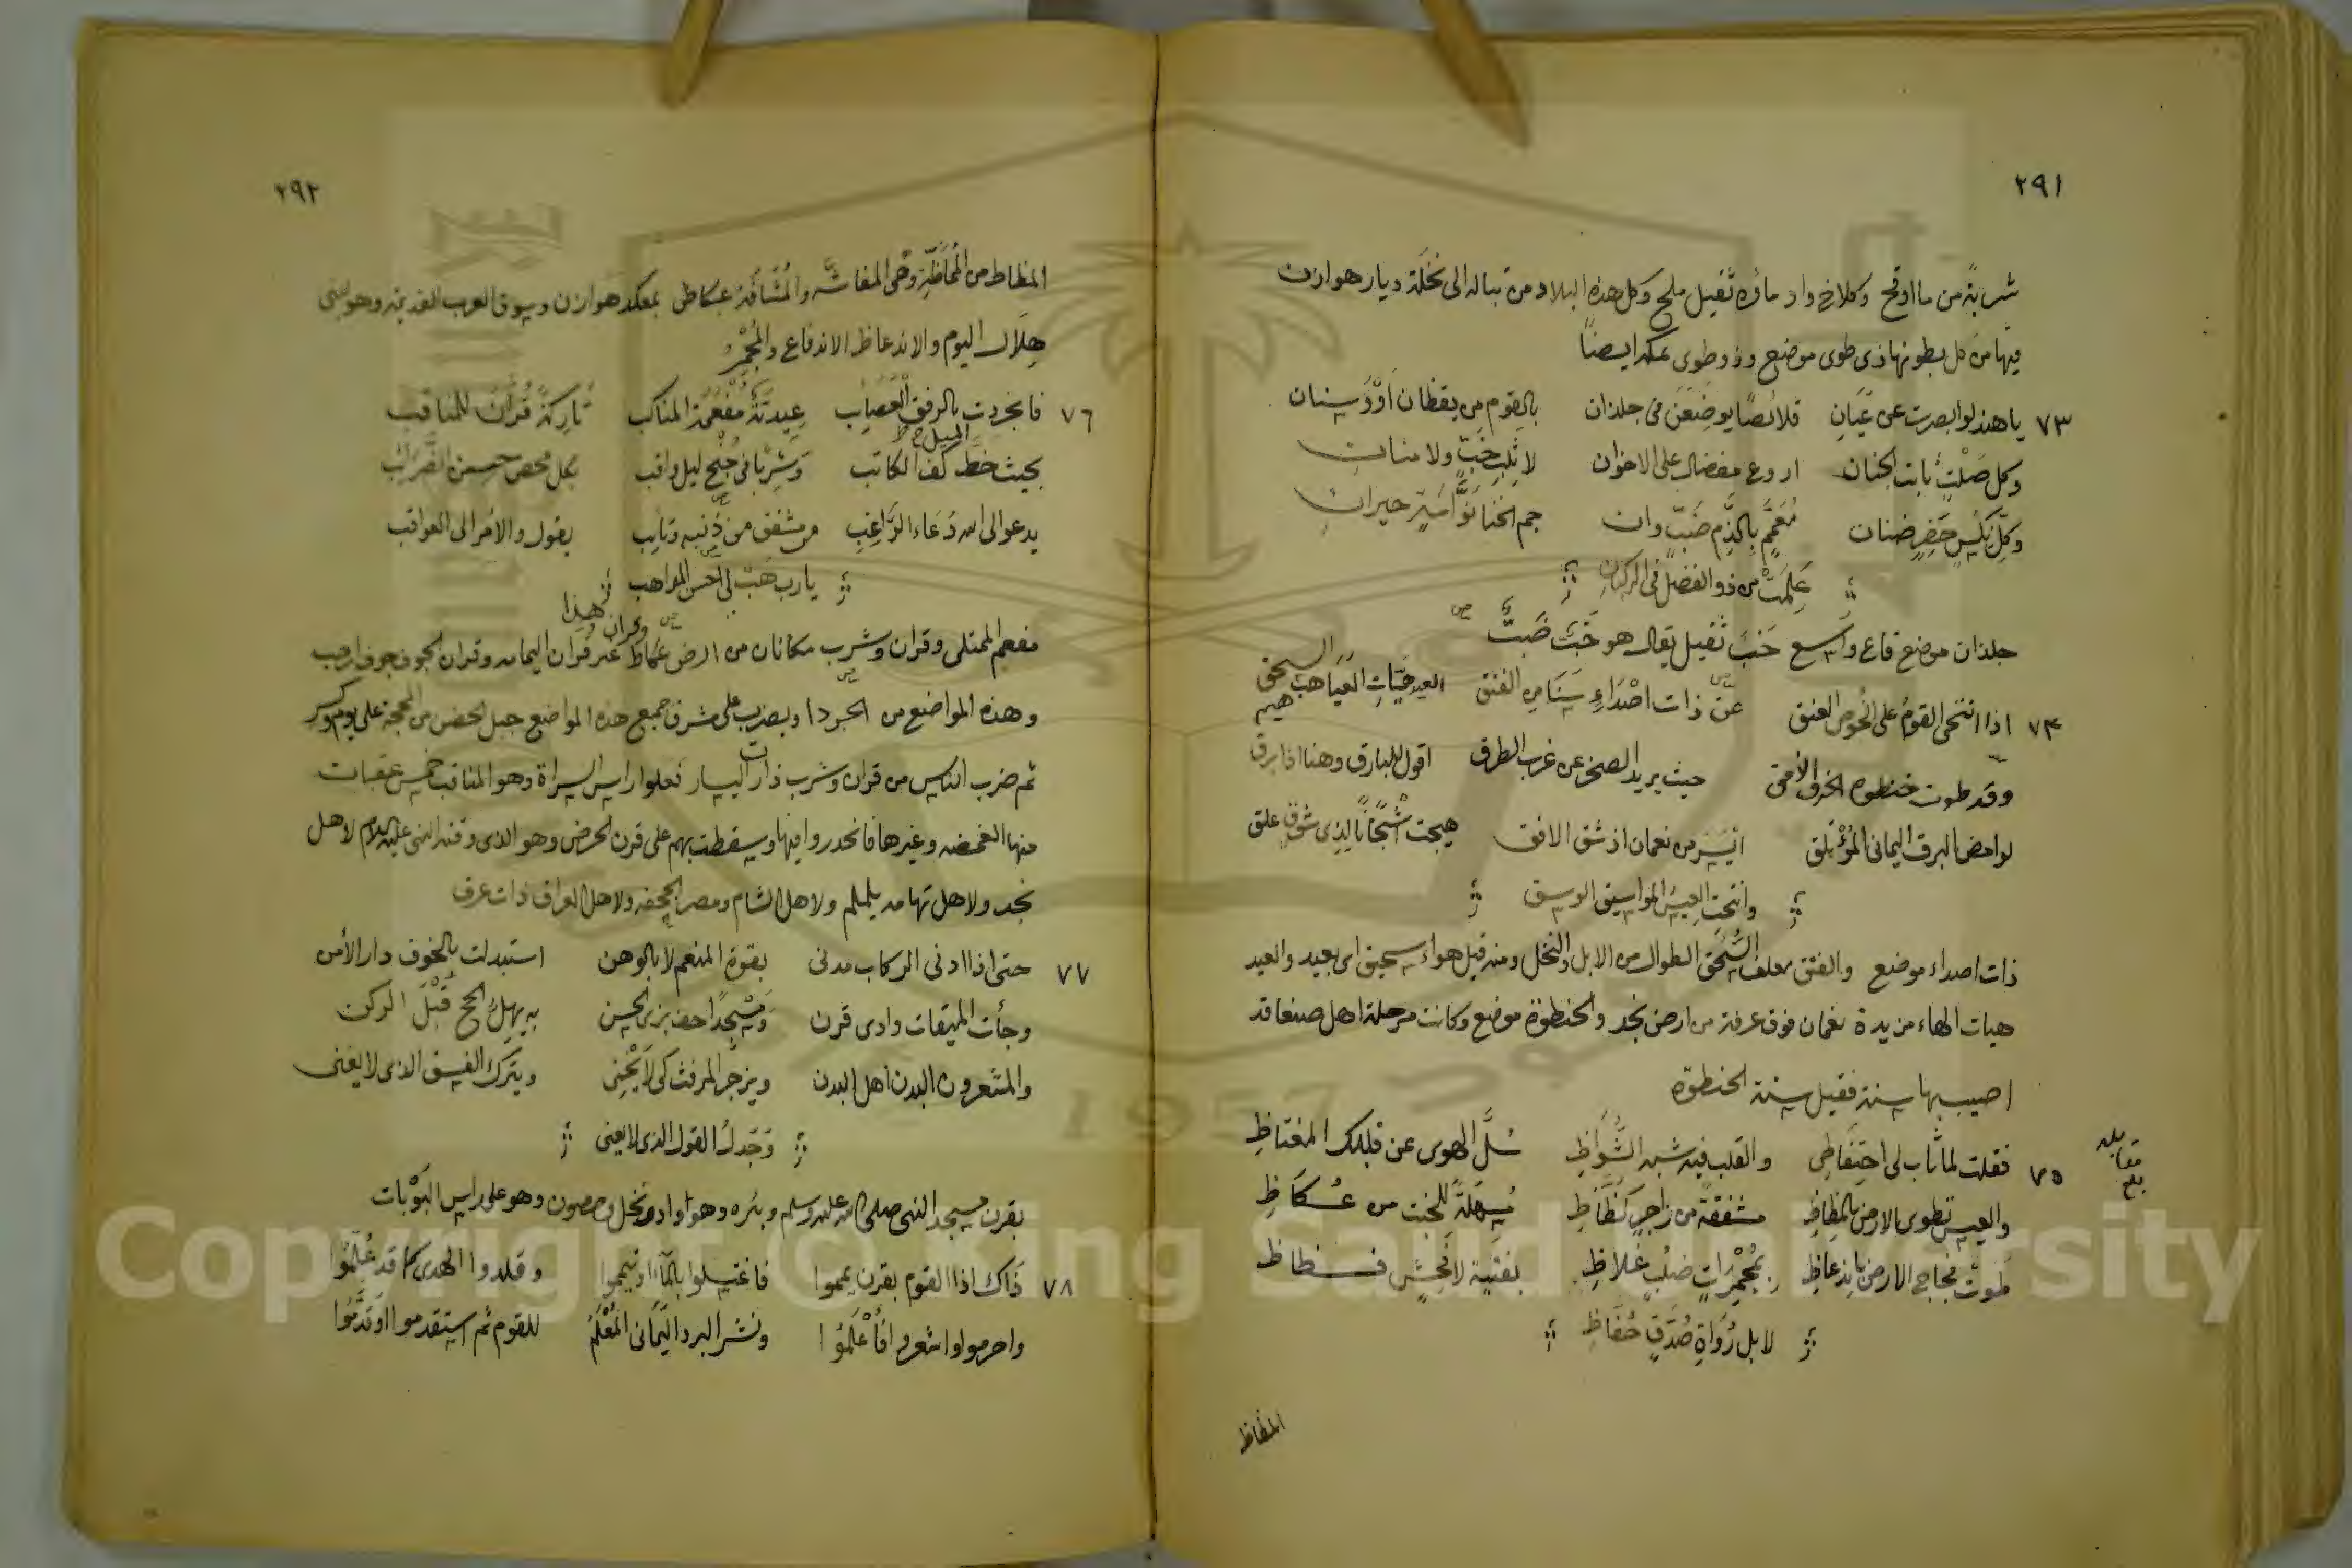 ٢٩١
شربة من ما اوقح وكلاخ واد ماؤه ثقيل ملح وكل هذه البلاد من تباله الى نخلة ديار هوازن
فيها من كل بطونها ذى طوى موضع وذو طوى بمكه ايضاً
٧٣ ياهند لو ابصرت عن عَيَانِ قلائصًا يوضعن فى جلذان بالقوم من يقظان اوْوَسنان
وكل صَلْتٍ ثابت الجنان اروع مفضال على الاخوان لا ثلب خبّ ولا منان
وكلّ نكس حَفِرٍ ضنان مُعَمَّم بالذّم ضَبّ وان جم الخنا حيران
عَلِمتَ من ذو الفضل فى الركبان
جلذان موضع قاع واسع خَبَ ثقيل يقال هو خَبّ ضَبٌّ
٧٤ اذا انتحى القوم على الخوص العنق عن ذات اصْدَاءٍ سَنَامِ الفنق العيدهيّات العَيَاهب السحق
هيم
وقد طوت خنطوه الخرق الأمق حيث يريد الصخر عن غرب الطرق اقول للبارق وهنا اذا برق
لوامض البرق اليمانى المؤتلق من نعمان اذ شق الافق هيجت اشجانا لذى شوق علق
وانتحت العيس المواسيق الوسق
ذات اصداء موضع والفنق معلف السُّحق الطوال من الابل والنخل ومنه قيل هواء سحيق اى بعيد والعيد
هيات الهاء مزيدة نعمان فوق عرفة من ارض نجد والخنطوة موضع وكانت مرحلة اهل صنعا قد
اصيب بها سنة فقيل سنة الخنطوة
٧٥ فقلت لما ثاب لى احتفاظى والقلب فيه شبه الشُّوَاظِ سُلَّ الهوى عن قلبك المغتاظِ
بلغ مقابله
والعيس تطوى الارض بالمظاظِ مشفقة من زاجرٍ كَظَّاظِ مُسهلةً للخبت من عُكَاظِ
طَوتْ فجاج الارض باندعاظِ بمُجمَراتٍ صُلُبٍ غلاظِ بفتية لا فُحش فظاظ
لا بل رُوَاةٍ صُدَقٍ حُفّاظِ
المظاظ
٢٩٢
المظاظ من المُمَاظّة وهى المشاتمة والمُشاقة عكاظ بمعكد هوازن وسوق العرب القديمة وهو لبنى
هِلَال اليوم والاندعاظ الاندفاع والمُجْمَر
٧٦ فانجردت بالرفق العصَاب عيديّةٌ مفعمة المناكب تاركة قُرّانَ للمناقب
الميل ص ط
بحيث خطّ كف الكاتب وشربًا فى جُنح ليل واقب بكل محض حسن الضَّرَائب
يدعو الى الله دُعَاء الرَّاغِبِ من مشفق من ذنبه وتايب يقول والامر الى العواقب
يا رب هَبْ لى احسن المواهب
مفعم الممتلى وقران وشرب مكانان من ارض عكاظ غير قران اليمامه وقران الجوف جوف ارحب
وقران هذا
وهذه المواضع من الجردا ويضرب على مشرق جميع هذه المواضع جبل الحضن من المحجة على يوم وكسر
ثم ضرب الناس من قران وشرب ذات اليسار فعلوا راس السراة وهو المناقب خمس عقبات
منها الغمضه وغيرها فانحدروا فيها وسقطت بهم على قرن الحرض وهو الذى وقته النبى عليه السلام لاهل
نجد ولاهل تهامه يلملم ولاهل الشام ومصر الجحفه ولاهل العراق ذات عرق
٧٧ حتى اذا ادنى الركاب مدنى بقوة المنعم لا بالوهن استبدلت بالخوف دار الأمن
وجأت الميقات وادى قرن ومَسْجِدًا حف بزى الحسن به يهلّ الحج قَبْلَ الركن
والمشعرون البدن اهل البدن ويزجر المرفث كى لا يَجْنِى ويترك الفسق الذى لا يغنى
وَجَدلُ القول الذى لا يعنى
بقرن مسجد النبى صلى الله عليه وسلم وبئره وهو واد ونخل وحصون وهو على راس البوْبات
٧٨ ذَاك اذا القوم بقرن يمموا فاغتسلوا بالمآ او تيمموا وقلدوا الهدى كما قد عُلِّمُوا
واحرموا واشعروا فأعْلَمُوا ونشر البرد اليمانى المُعْلَمُ للقوم ثم استقدموا او قدَّمُوا